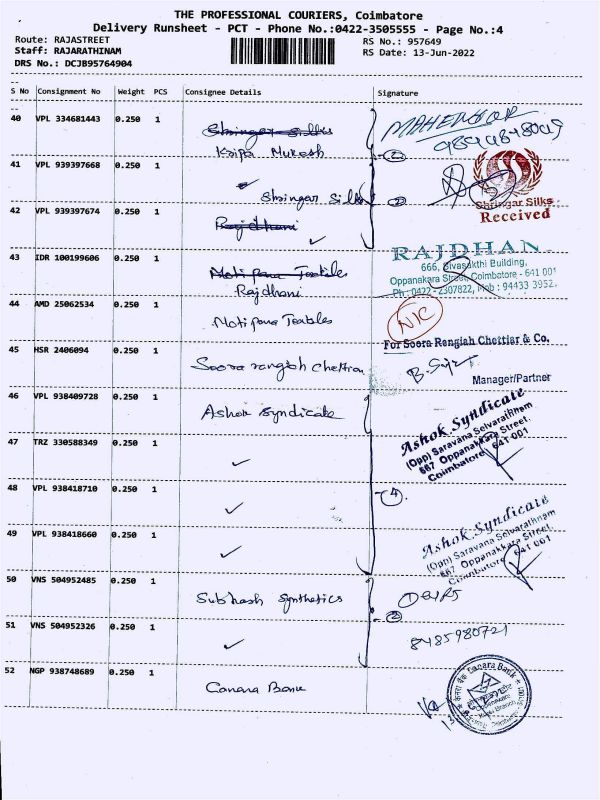 THE PROFESSIONAL COURIERS, Coimbatore
Delivery Runsheet - PCT - Phone No.:0422-3505555 - Page No.:4
Route: RAJASTREET
RS No.: 957649
Staff: RAJARATHINAM
RS Date: 13-Jun-2022
DRS No.: DCJB95764904
S No Consignment No Weight PCS Consignee Details Signature
40 VPL 334681443 0.250 1 Shringar Silks MAHENDDR
Kripa Mukesh 9894848049
41 VPL 939397668 0.250 1
Shringar Silks
Shringar Silks
Received
42 VPL 939397674 0.250 1 Rajdhani
43 IDR 100199606 0.250 1 Motipona Textiles
Rajdhani
RAJDHAN
666, Sivasakthi Building,
Oppanakara Street, Coimbatore - 641 001
Ph : 0422 - 2307822, Mob : 94433 3952.
44 AMD 25062534 0.250 1 Motipona Texbles
N/C
45 HSR 2406094 0.250 1 Soora rangiah Chettiar
For Soora Rengiah Chettiar & Co.
Manager/Partner
46 VPL 938409728 0.250 1 Ashok Syndicate
Ashok Syndicate
(Opp) Saravana Selvarathnam
667 Oppanakkara Street,
Coimbatore 641 001
47 TRZ 330588349 0.250 1
48 VPL 938418710 0.250 1
4
49 VPL 938418660 0.250 1
Ashok Syndicate
(Opp) Saravana Selvarathnam
667 Oppanakkara Street,
Coimbatore 641 001
50 VNS 504952485 0.250 1 Subhash Synthetics
2
51 VNS 504952326 0.250 1
8485980721
52 NGP 938748689 0.250 1 Canara Bank
Canara Bank